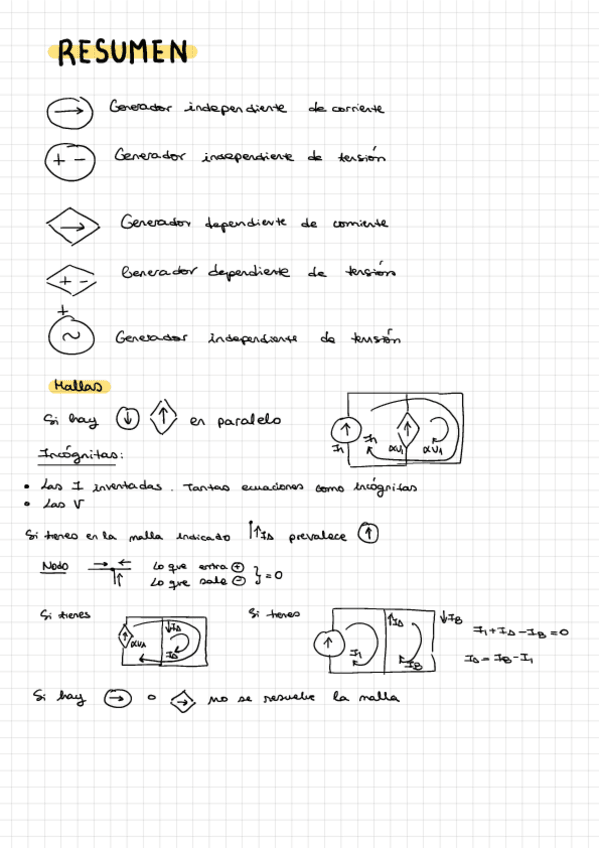 RESUMEN
Generador independiente de corriente
+ - Generador independiente de tensión
Generador dependiente de corriente
+ - Generador dependiente de tensión
+
~ Generador independiente de tensión
Mallas
Si hay ↓ ↑ en paralelo
I1 I1 αV1 αV1
Incógnitas:
• Las I inventadas. Tantas ecuaciones como incógnitas
• Las V
Si tienes en la malla indicado ↑IΔ prevalece ↑
Nodo → ← Lo que entra + } = 0
↑ Lo que sale -
Si tienes αVA ↓IΔ IΔ
Si tienes I1 ↑IΔ IB ↓IB
I1 + IΔ - IB = 0
IΔ = IB - I1
Si hay → o → no se resuelve la malla